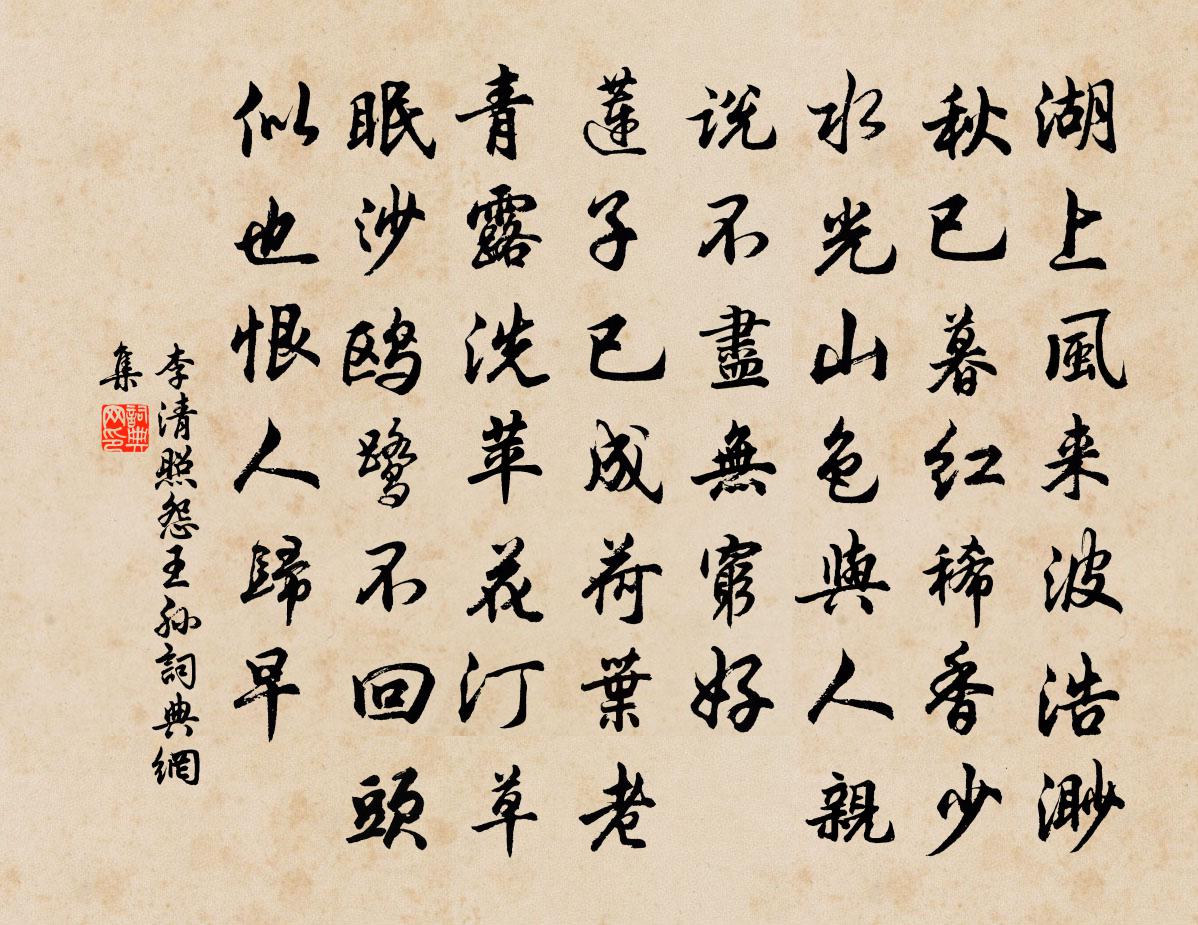 湖上風来波浩渺
秋已暮红稀香少
水光山色與人親
說不盡無窮好
蓮子已成荷葉老
青露洗苹花汀草
眠沙鸥鹭不回頭
似也恨人歸早
李清照怨王孙詞典網
集
詞典
网印